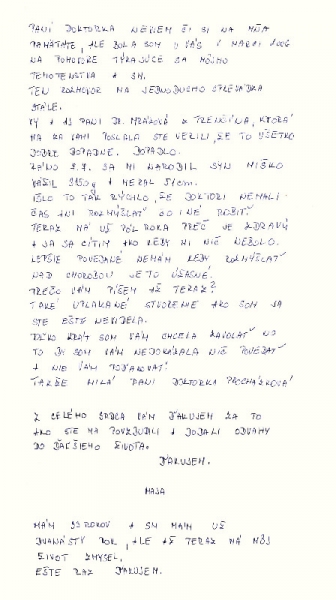 PANI DOKTORKA NEVIEM ČI SI NA MŇA
PAMÄTÁTE, ALE BOLA SOM U VÁS V MARCI 2006
NA POHOVORE TÝKAJÚCE SA MÔJHO
TEHOTENSTVA A SM.
TEN ROZHOVOR MA JEDNODUCHO SPREVÁDZA
STÁLE.
VY A AJ PANI DR. Z TRENČÍNA, KTORÁ
MA KU VÁM POSLALA STE VERILI, ŽE TO VŠETKO
DOBRE DOPADNE. DOPADLO.
RÁNO SA MI NARODIL SYN MIŠKO
VÁŽIL A MERAL 51cm.
IŠLO TO TAK RÝCHLO, ŽE DOKTORI NEMALI
ČAS ANI ROZMÝŠĽAŤ ČO INÉ ROBIŤ.
TERAZ MÁ UŽ PÔL ROKA PREČ JE ZDRAVÝ
A JA SA CÍTIM AKO KEBY MI NIČ NEBOLO.
LEPŠIE POVEDANÉ NEMÁM KEDY ROZMÝŠĽAŤ
NAD CHOROBOU JE TO ÚŽASNÉ.
PREČO VÁM PÍŠEM AŽ TERAZ?
TAKÉ UPLAKANÉ STVORENIE AKO SOM JA
STE EŠTE NEVIDELA.
KRÁT SOM VÁM CHCELA ZAVOLAŤ NO
TO BY SOM VÁM NEDOKÁZALA NIČ POVEDAŤ
A NIE VÁM POĎAKOVAŤ!
TAKŽE MILÁ PANI DOKTORKA PROCHÁZKOVÁ
Z CELÉHO SRDCA VÁM ĎAKUJEM ZA TO
AKO STE MA POVZBUDILI A DODALI ODVAHY
DO ĎALŠIEHO ŽIVOTA.
ĎAKUJEM.
MAJA
MÁM ROKOV A SM MÁM UŽ
DVANÁSTY ROK, ALE AŽ TERAZ MÁ MÔJ
ŽIVOT ZMYSEL.
EŠTE RAZ ĎAKUJEM.